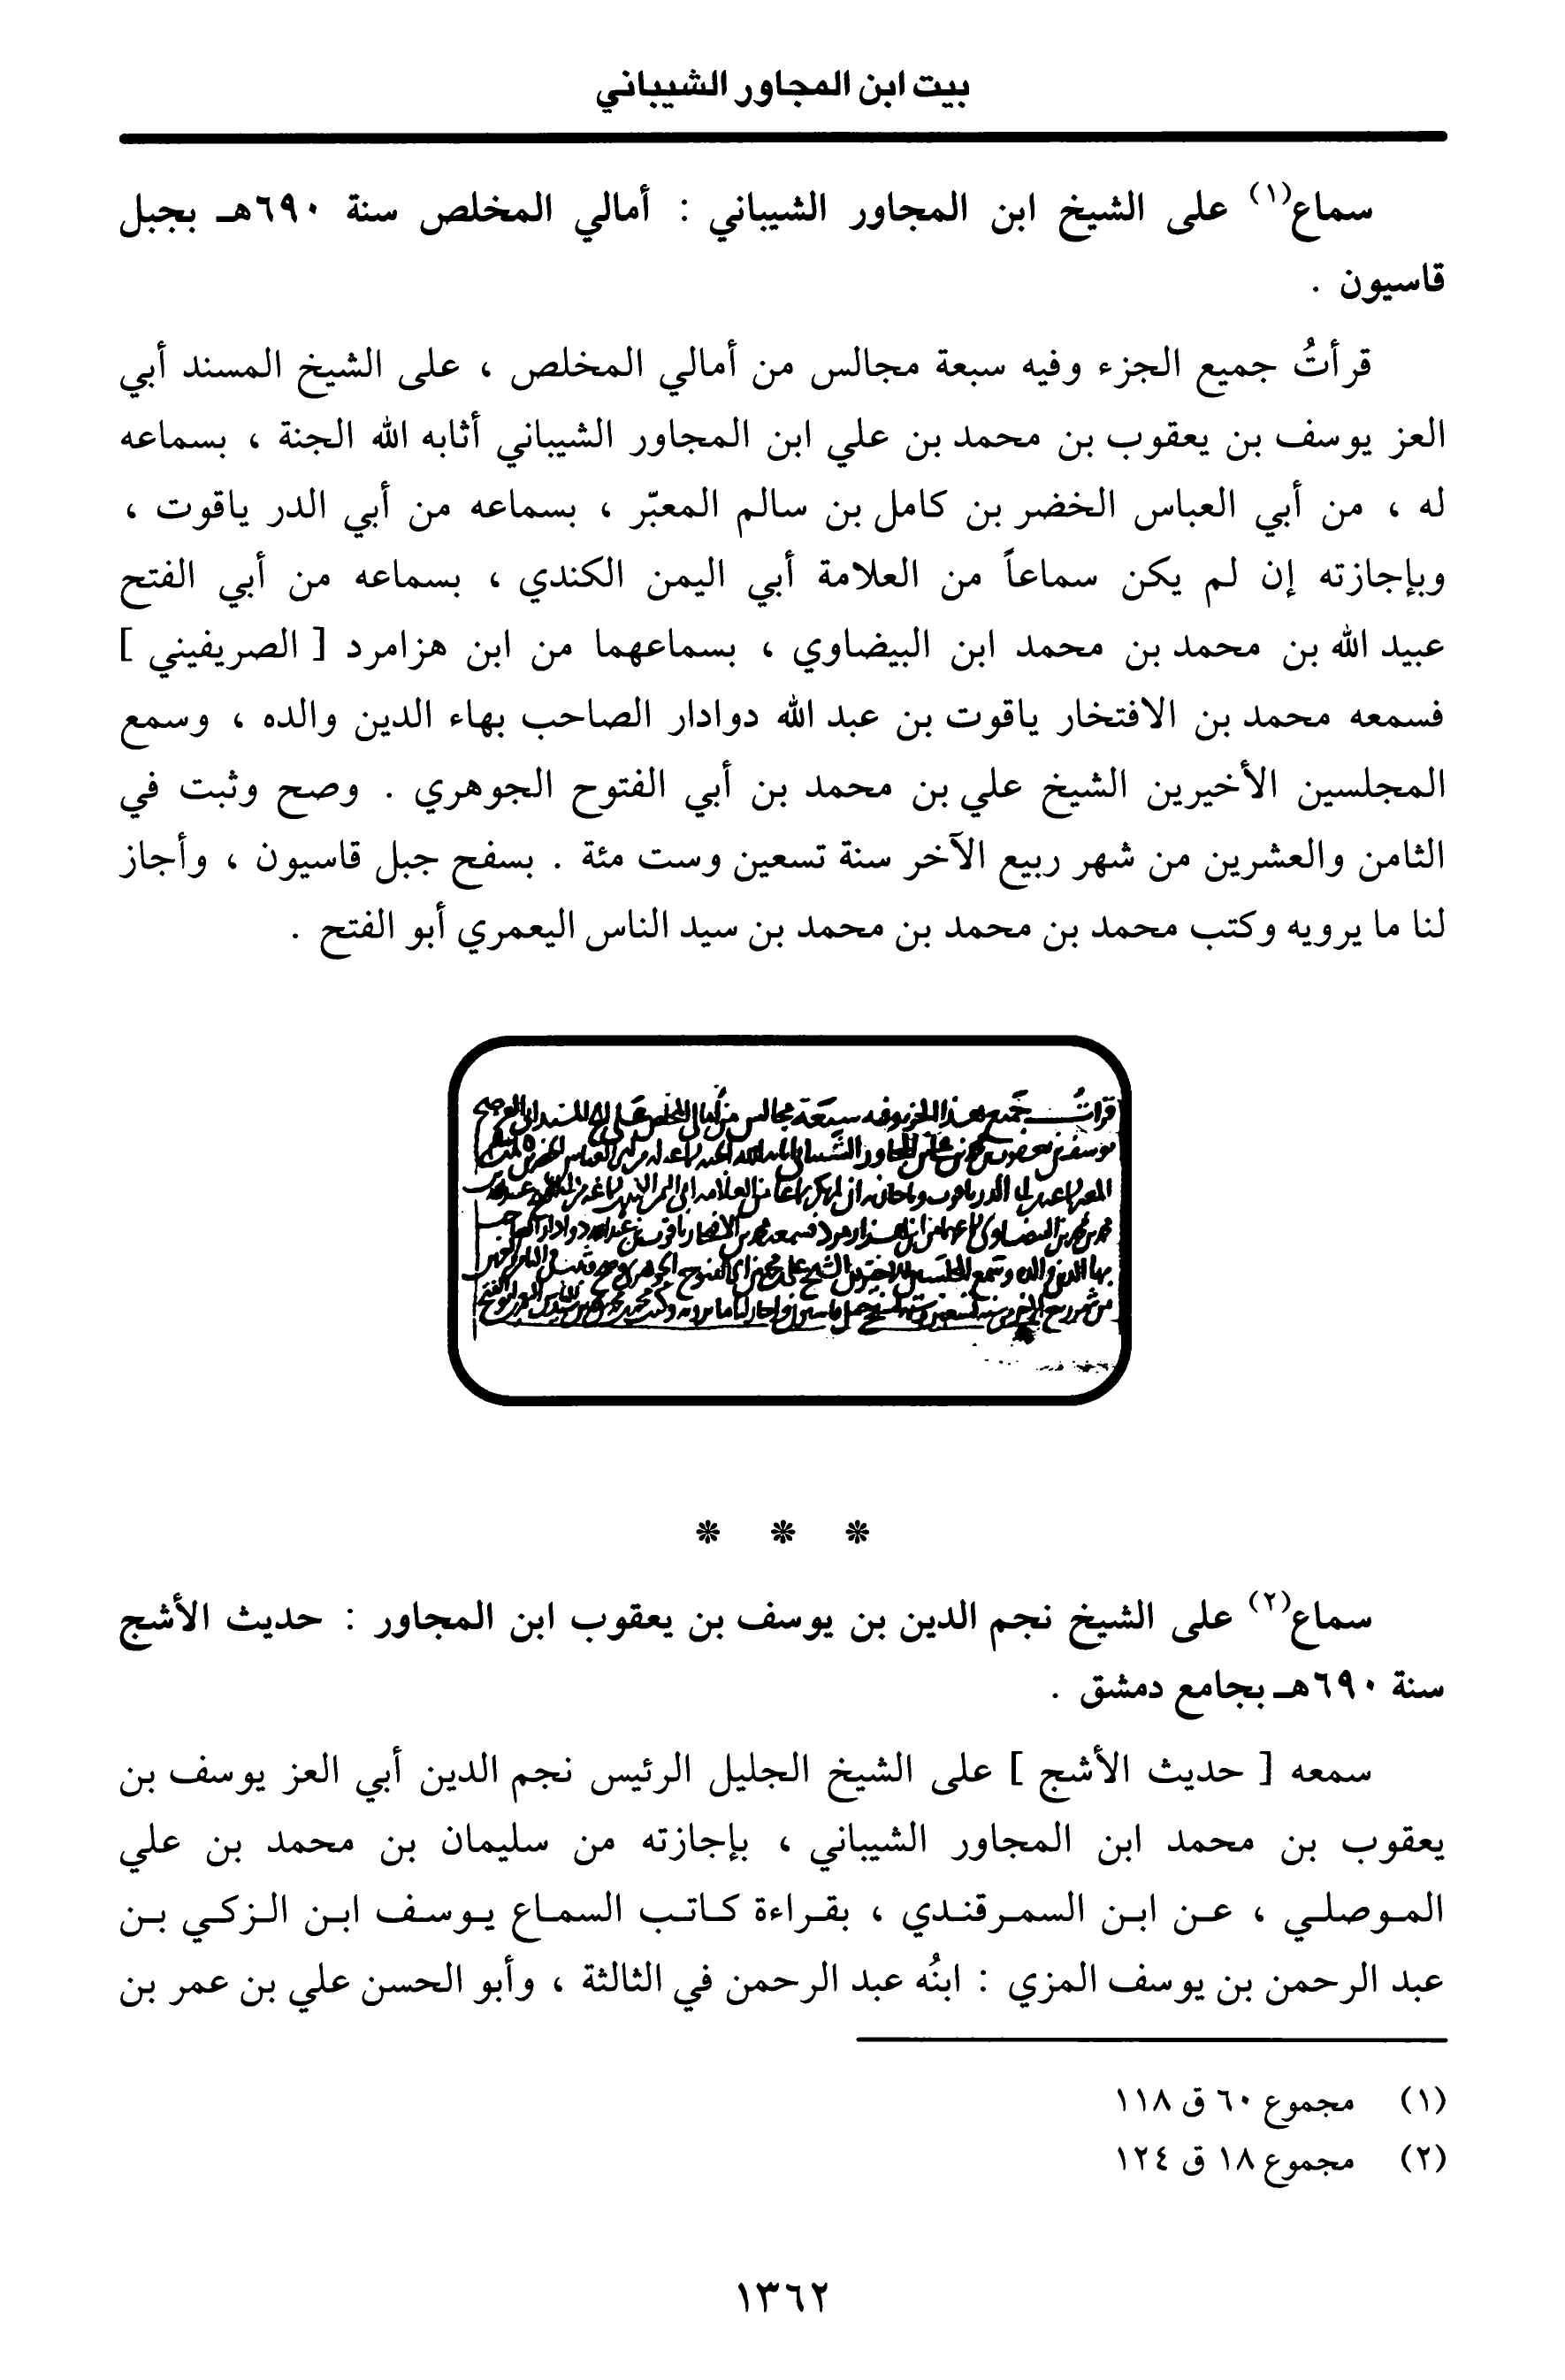 بيت ابن المجاور الشيباني
سماع(١) على الشيخ ابن المجاور الشيباني : أمالي المخلص سنة ٦٩٠هـ بجبل
قاسيون .
قرأتُ جميع الجزء وفيه سبعة مجالس من أمالي المخلص ، على الشيخ المسند أبي
العز يوسف بن يعقوب بن محمد بن علي ابن المجاور الشيباني أثابه الله الجنة ، بسماعه
له ، من أبي العباس الخضر بن كامل بن سالم المعبّر ، بسماعه من أبي الدر ياقوت ،
وبإجازته إن لم يكن سماعاً من العلامة أبي اليمن الكندي ، بسماعه من أبي الفتح
عبيد الله بن محمد بن محمد ابن البيضاوي ، بسماعهما من ابن هزامرد [ الصريفيني ]
فسمعه محمد بن الافتخار ياقوت بن عبد الله دوادار الصاحب بهاء الدين والده ، وسمع
المجلسين الأخيرين الشيخ علي بن محمد بن أبي الفتوح الجوهري . وصح وثبت في
الثامن والعشرين من شهر ربيع الآخر سنة تسعين وست مئة . بسفح جبل قاسيون ، وأجاز
لنا ما يرويه وكتب محمد بن محمد بن محمد بن سيد الناس اليعمري أبو الفتح .
* * *
سماع(٢) على الشيخ نجم الدين بن يوسف بن يعقوب ابن المجاور : حديث الأشج
سنة ٦٩٠هـ بجامع دمشق .
سمعه [ حديث الأشج ] على الشيخ الجليل الرئيس نجم الدين أبي العز يوسف بن
يعقوب بن محمد ابن المجاور الشيباني ، بإجازته من سليمان بن محمد بن علي
الموصلي ، عن ابن السمرقندي ، بقراءة كاتب السماع يوسف ابن الزكي بن
عبد الرحمن بن يوسف المزي : ابنُه عبد الرحمن في الثالثة ، وأبو الحسن علي بن عمر بن
(١) مجموع ٦٠ ق ١١٨
(٢) مجموع ١٨ ق ١٢٤
١٣٦٢